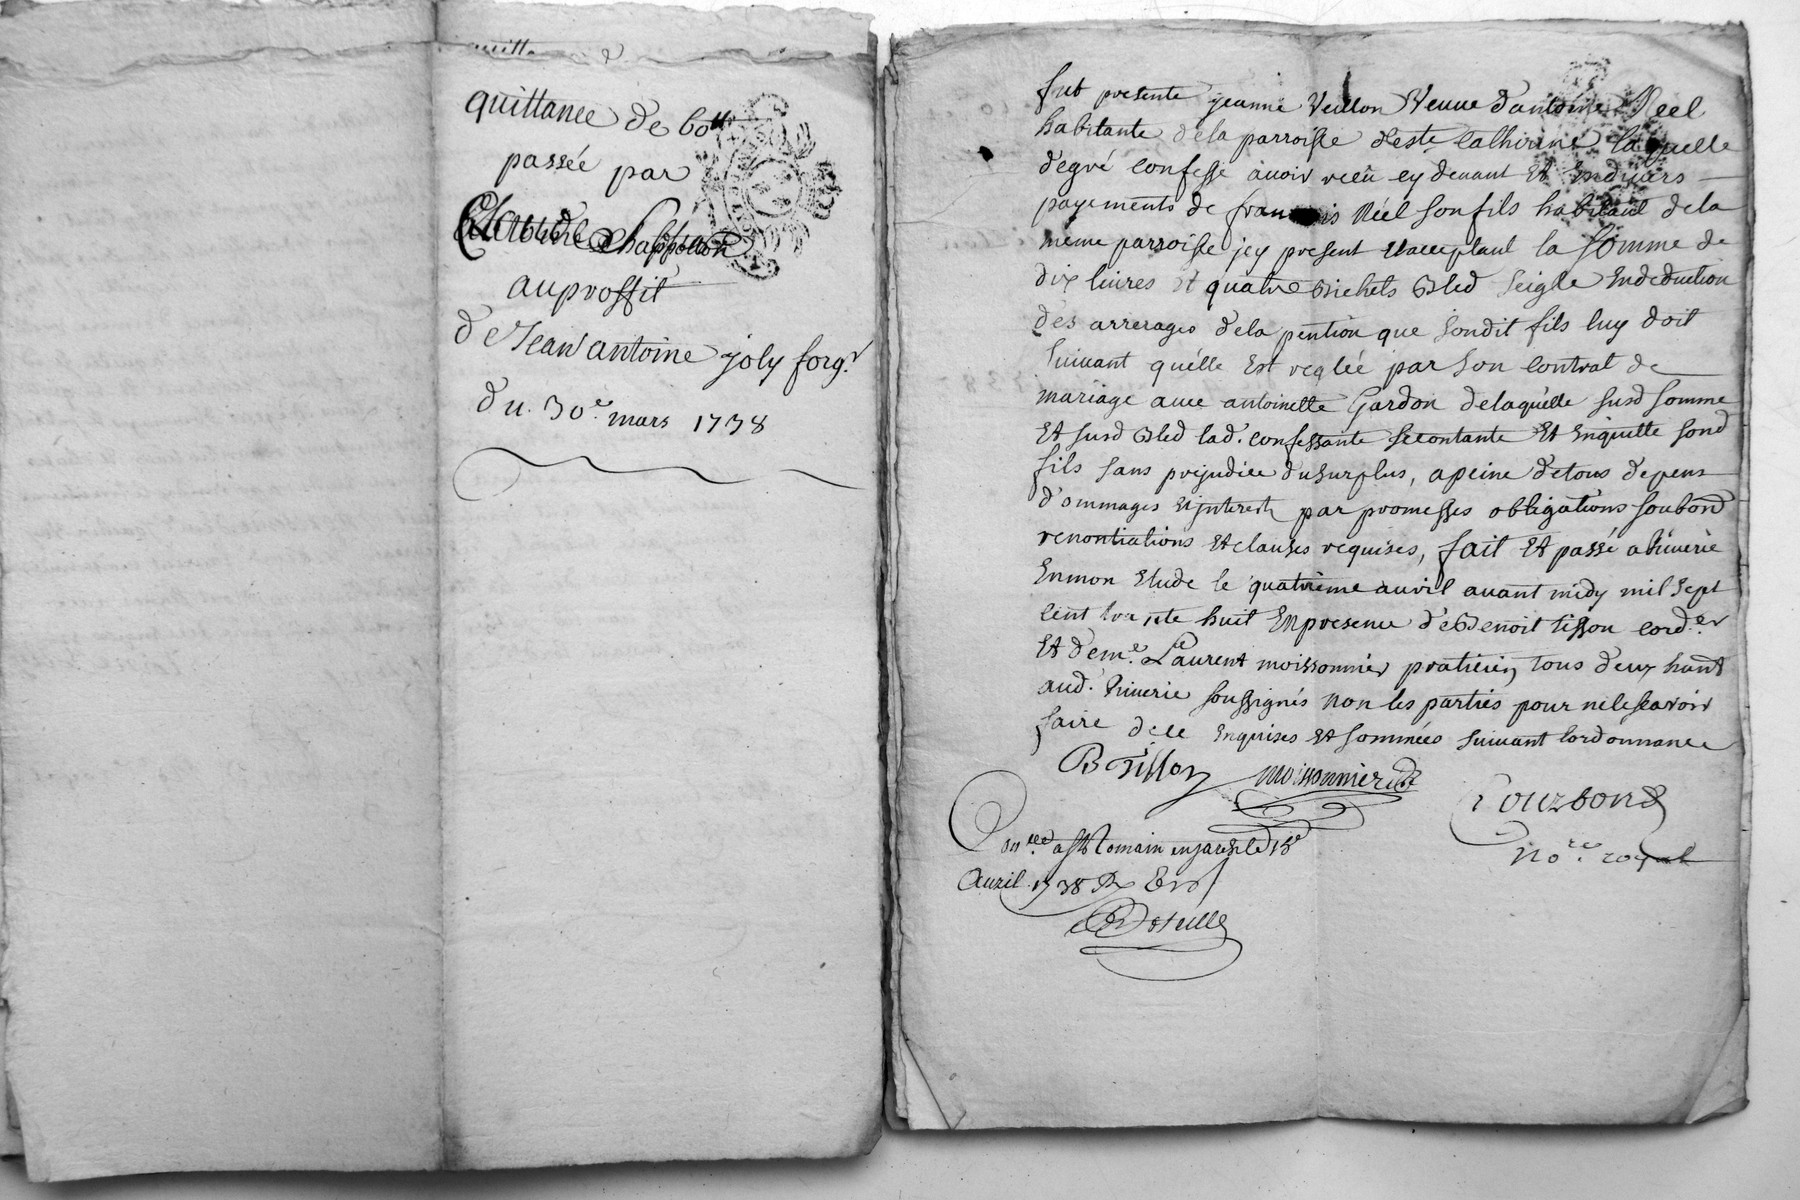 quittance de 60tt
passée par
Claude Chappelon
auproffit
de Jean antoine joly forgr
du 30e mars 1738
fut presente jeanne Veillon Veuve d'antoine Réel
habitante dela parroisse de ste Catherine laquelle
de gré confesse avoir reçû cy devant Et En divers
payements de françois Réel son fils habitant dela
meme parroisse jcy present Et acceptant la somme de
dix livres et quatre Bichets Bled seigle En deduction
des arrerages dela pention que sondit fils luy doit
suivant qu'elle Est reglée par son contrat de
mariage avec antoinette Gardon delaquelle susd somme
Et susd Bled lad. confessante se contante Et Enquitte sond
fils sans prejudice du surplus, a peine de tous depens
dommages Et jnterests par promesses obligations soub...
renontiations Et clauses requises, fait Et passé a Riverie
En mon Etude le quatrieme avril avant midy mil sept
cent trente huit En presence de Benoit tisson cord.er
Et de me. Laurent moissonnier praticien tous deux hant
aud. Riverie soussignés non les parties pour ne le scavoir
faire de ce Enquises Et sommées suivant lordonnance
B Tisson moissonnier
nore. royal
a st Romain en jarest le 15e
Avril 1738